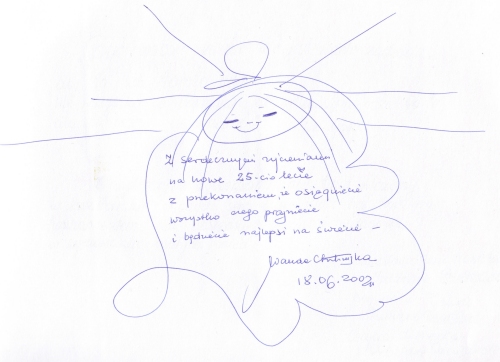 Z serdecznymi życzeniami
na nowe 25-cio lecie
z przekonaniem, że osiągniecie
wszystko czego pragniecie
i będziecie najlepsi na świecie –
Wanda
18.06.2002